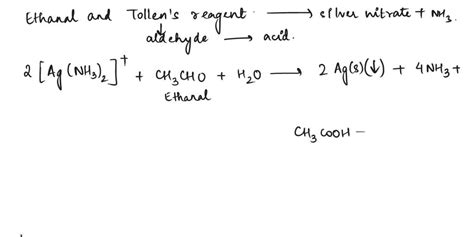 Ethanal and Tollen's reagent. ⟶ silver nitrate + NH₃.
↓
aldehyde ⟶ acid.
2 [Ag(NH₃)₂]⁺ + CH₃CHO + H₂O ⟶ 2 Ag(s)(↓) + 4NH₃ +
Ethanal
CH₃COOH –